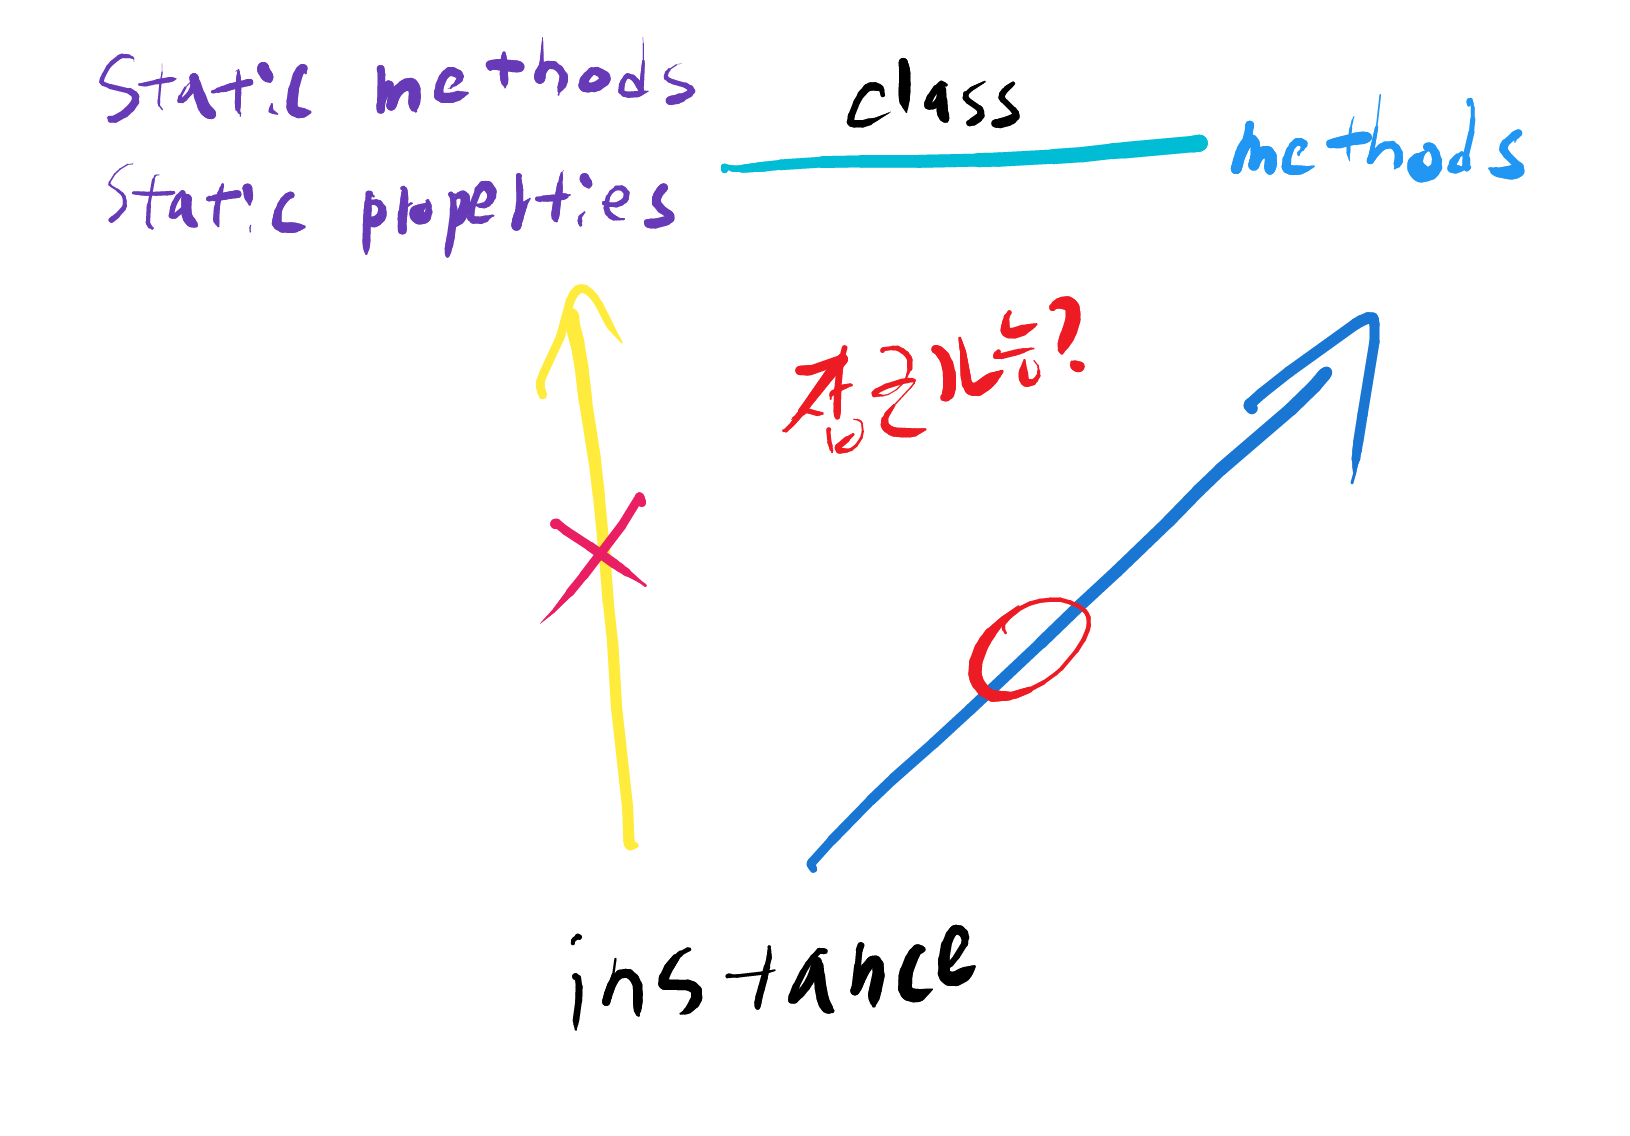 Static methods
Static properties
class
methods
접근가능?
instance